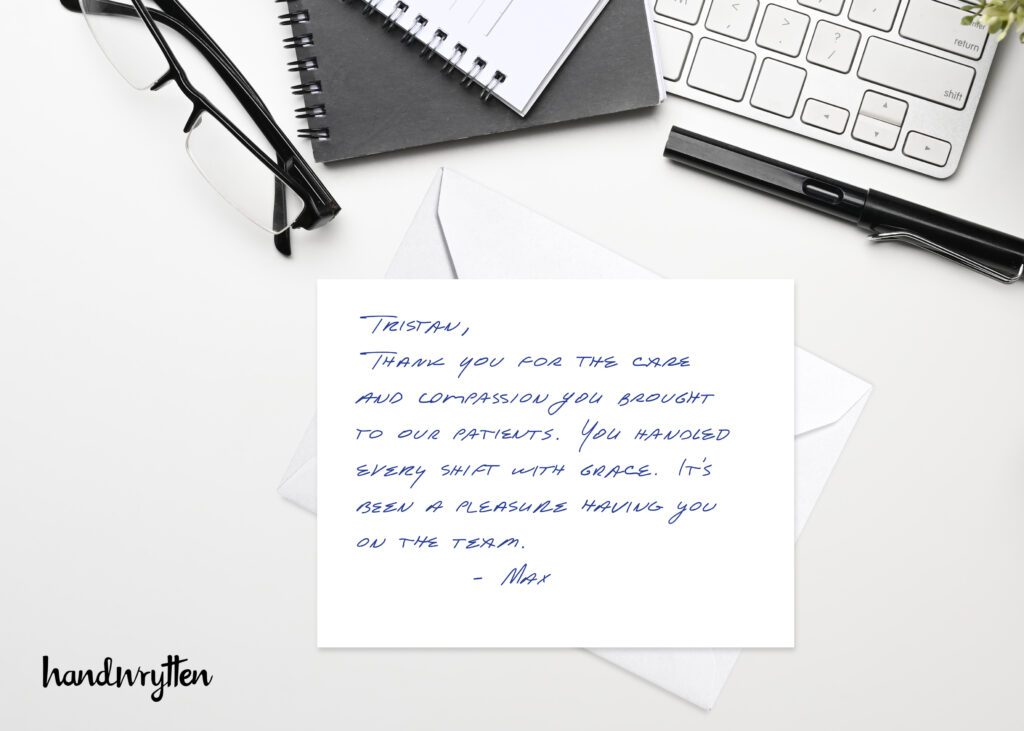 enter
return
shift
<
,
>
.
?
/
TRISTAN,
THANK YOU FOR THE CARE
AND COMPASSION YOU BROUGHT
TO OUR PATIENTS. YOU HANDLED
EVERY SHIFT WITH GRACE. IT'S
BEEN A PLEASURE HAVING YOU
ON THE TEAM.
- MAX
handwrytten